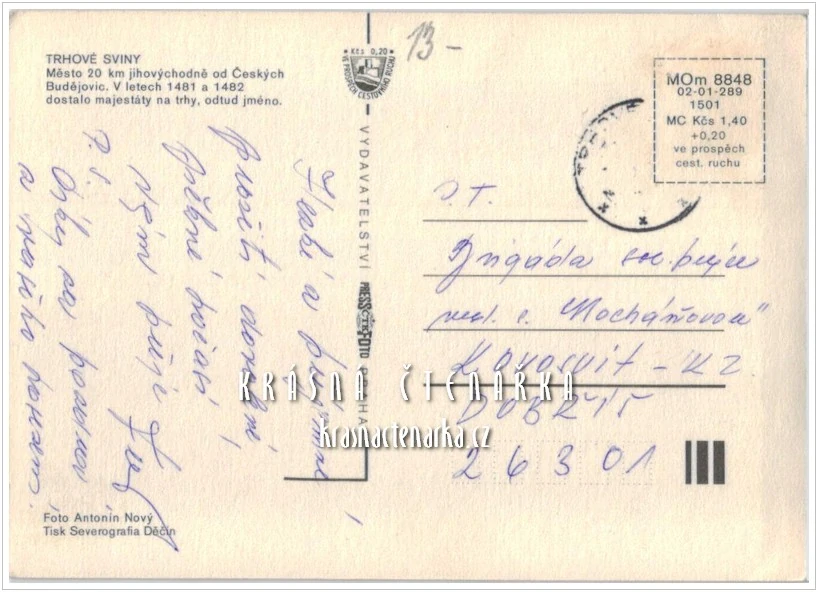 TRHOVÉ SVINY
Město 20 km jihovýchodně od Českých
Budějovic. V letech 1481 a 1482
dostalo majestáty na trhy, odtud jméno.
Kčs 0,20
VE PROSPĚCH CESTOVNÍHO RUCHU
13-
MOm 8848
02-01-289
1501
MC Kčs 1,40
+0,20
ve prospěch
cest. ruchu
VYDAVATELSTVÍ PRESSFOTO PRAHA
ČTK
prožití dovolené,
pěkné počasí
Vám přeji
P.S.
a
Brigáda soc. práce
ved. s. "Mocháňovou"
Kovosvit - KZ
DOBŘÍŠ
26301
KRÁSNÁ ČTENÁŘKA
krasnactenarka.cz
Foto Antonín Nový
Tisk Severografia Děčín